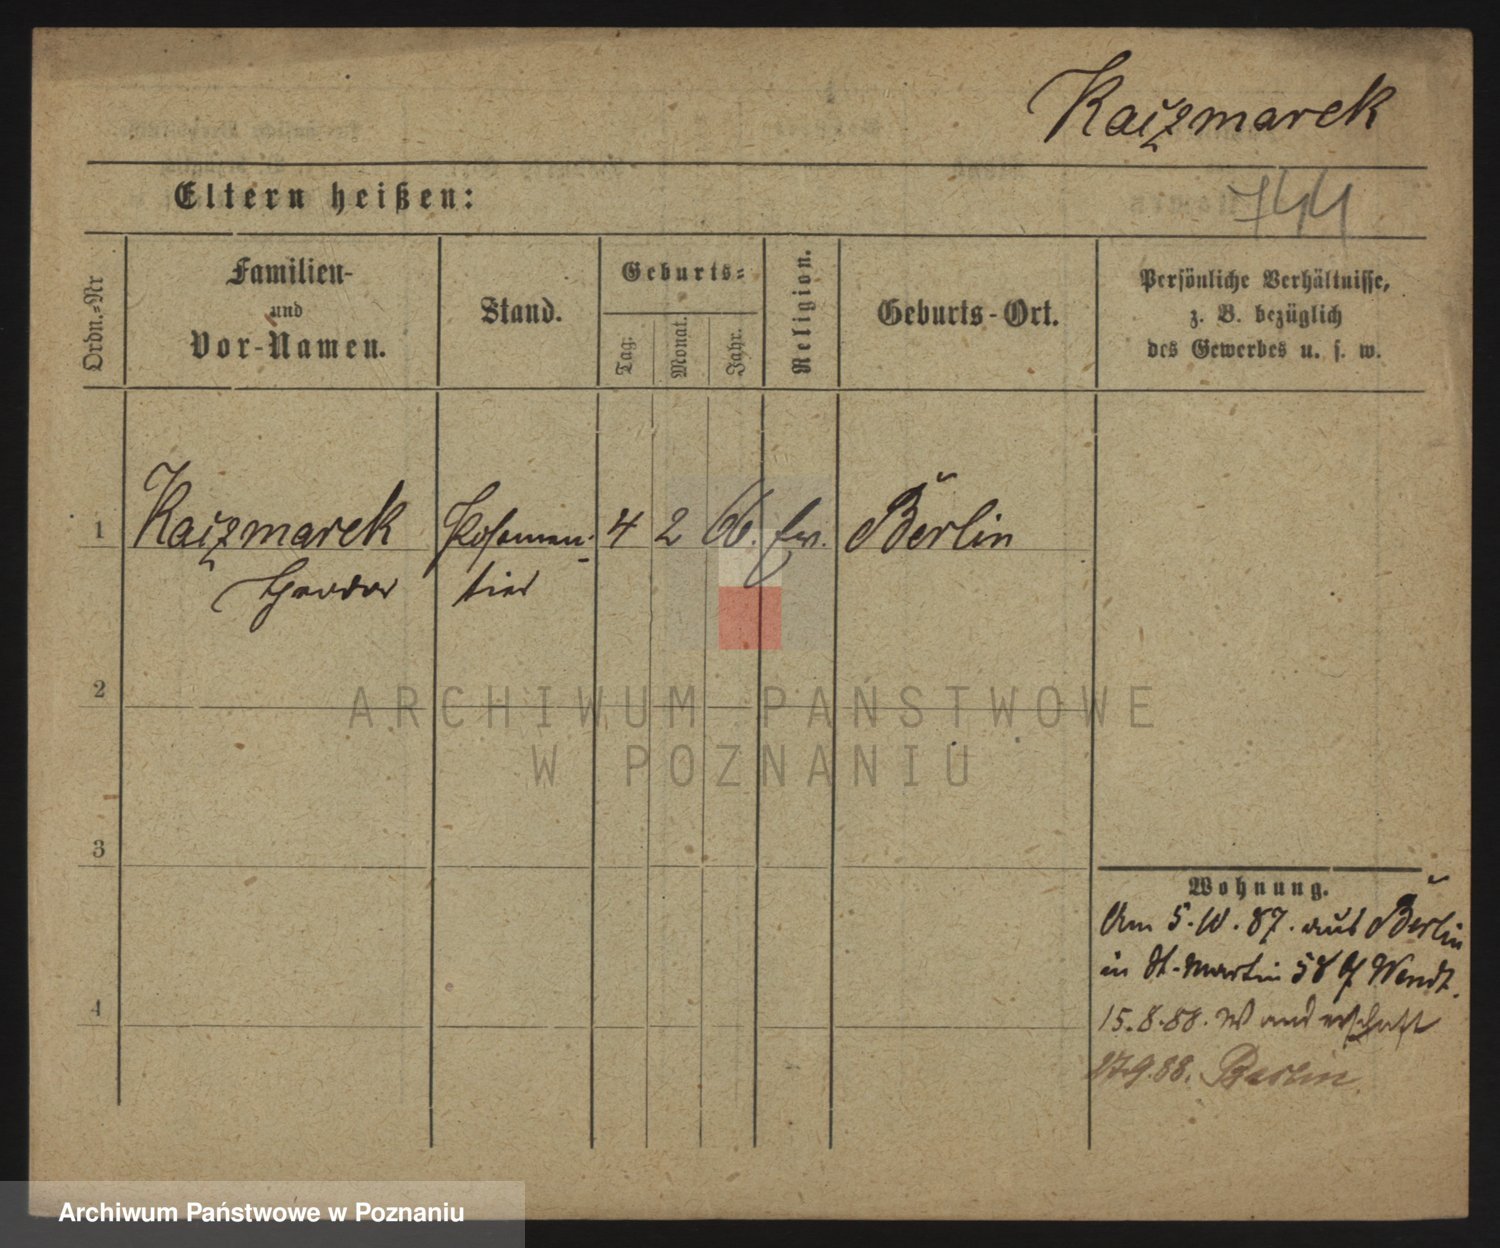 Kaczmarek
Eltern heißen:
744
Ordn.-Nr
Familien-
und
Vor-Namen.
Stand.
Geburts-
Tag.
Monat.
Jahr.
Religion.
Geburts-Ort.
Persönliche Verhältnisse,
z. B. bezüglich
des Gewerbes u. s. w.
1
Kaczmarek
Theodor
Posamen-
tier
4
2
66.
ev.
Berlin
2
ARCHIWUM PAŃSTWOWE
W POZNANIU
3
Wohnung.
Am 5. 10. 87. aus Berlin
in St. Martin 58 Wendt.
4
15.8.88. Wanderschaft
17.9.88. Berlin
Archiwum Państwowe w Poznaniu